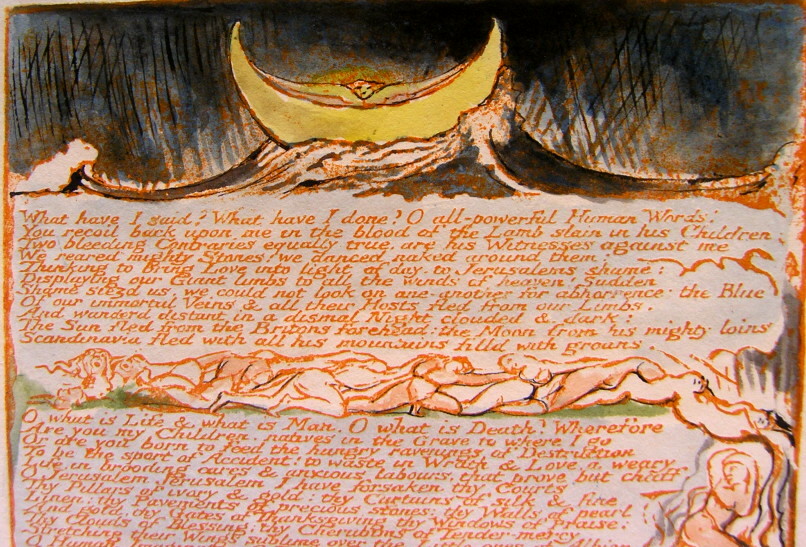 What have I said? What have I done? O all-powerful Human Words!
You recoil back upon me in the blood of the Lamb slain in his Children.
Two bleeding Contraries equally true, are his Witnesses against me
We reared mighty Stones: we danced naked around them:
Thinking to bring Love into light of day, to Jerusalems shame:
Displaying our Giant limbs to all the winds of heaven! Sudden
Shame siezd us, we could not look on one-another for abhorrence: the Blue
Of our immortal Veins & all their Hosts fled from our Limbs,
And wanderd distant in a dismal Night clouded & dark:
The Sun fled from the Britons forehead: the Moon from his mighty loins:
Scandinavia fled with all his mountains filld with groans.
O what is Life & what is Man. O what is Death? Wherefore
Are you my Children, natives in the Grave to where I go
Or are you born to feed the hungry ravenings of Destruction
To be the sport of Accident! to waste in Wrath & Love, a weary
Life, in brooding cares & anxious labours, that prove but chaff.
O Jerusalem Jerusalem I have forsaken thy Courts
Thy Pillars of ivory & gold: thy Curtains of silk & fine
Linen: thy Pavements of precious stones: thy Walls of pearl
And gold, thy Gates of Thanksgiving thy Windows of Praise:
Thy Clouds of Blessing; thy Cherubims of Tender-mercy
Stretching their Wings sublime over the Little-ones of Albion
O Human